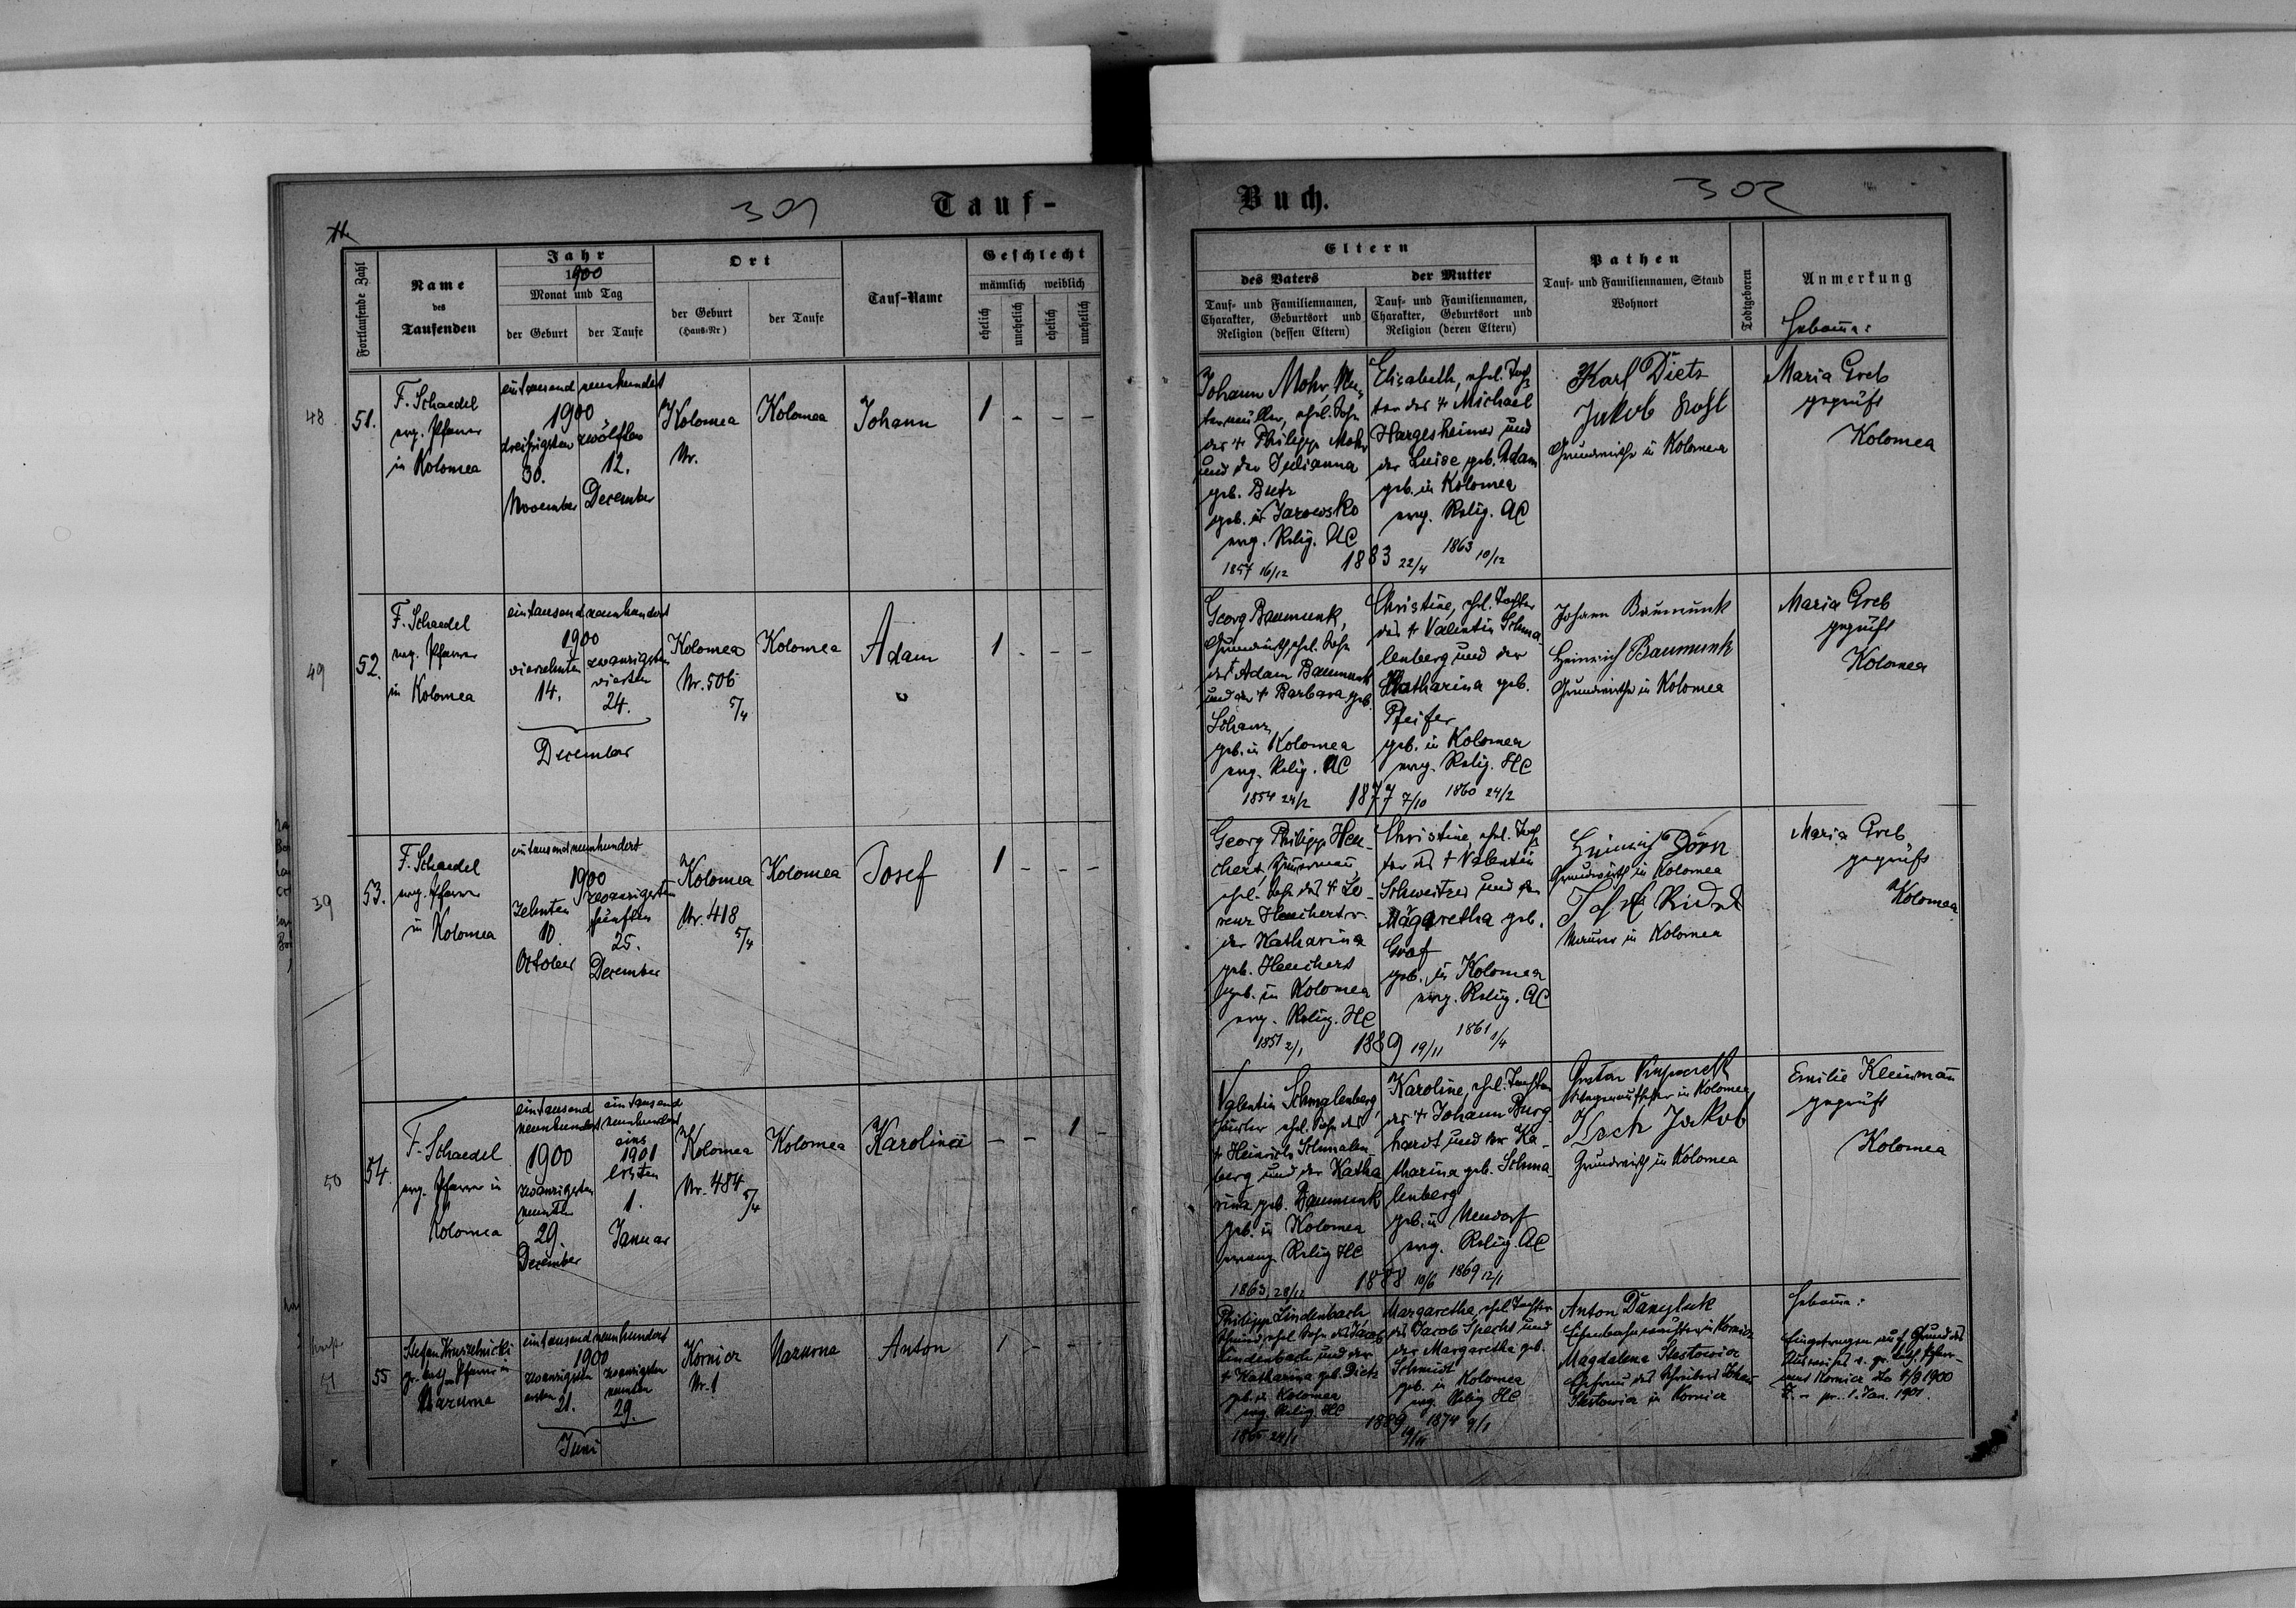 301
Tauf-
Fortlaufende Zahl
Name
des
Taufenden
Jahr
1900
Monat und Tag
der Geburt
der Taufe
Ort
der Geburt
(Haus-Nr)
der Taufe
Tauf-Name
Geschlecht
männlich weiblich
ehelich
unehelich
ehelich
unehelich
48
51.
F. Schaedel
evg. Pfarrer
in Kolomea
eintausend neunhundert
1900
dreißigsten
30.
November
zwölften
12.
December
Kolomea
Nr.
Kolomea
Johann
1 - - -
49
52.
F. Schaedel
evg. Pfarrer
in Kolomea
eintausend neunhundert
1900
vierzehnten
14.
zwanzigsten
vierten
24.
December
Kolomea
Nr. 506
5/4
Kolomea
Adam
1 - - -
39
53.
F. Schaedel
evg. Pfarrer
in Kolomea
eintausend neunhundert
1900
zehnten
10.
October
zwanzigsten
fünften
25.
December
Kolomea
Nr. 418
5/4
Kolomea
Josef
1 - - -
50
54.
F. Schaedel
evg. Pfarrer in
Kolomea
eintausend
neunhundert
1900
zwanzigsten
neunten
29
December
eintausend
neunhundert
eins
1901
ersten
1.
Januar
Kolomea
Nr. 484
5/4
Kolomea
Karolina
- - 1 -
51
55
Stefan
gr. kath. Pfarrer in
Nazurna
eintausend neunhundert
1900
zwanzigsten
ersten
21.
zwanzigsten
neunten
29.
Juni
Kornicz
Nr. 1
Nazurna
Anton
1 - - -
Buch.
302
Eltern
des Vaters
Tauf- und Familiennamen,
Charakter, Geburtsort und
Religion (dessen Eltern)
der Mutter
Tauf- und Familiennamen,
Charakter, Geburtsort und
Religion (deren Eltern)
Pathen
Tauf- und Familiennamen, Stand
Wohnort
Todtgeboren
Anmerkung
Hebamme:
Johann Mohr,
ehel. Sohn
des † Philipp Mohr
und der Julianna
geb. Bretz
geb. in Jarowsko
evg. Relig. AC
1857 16/12
1883 22/4
Elisabeth, ehel. Toch
ter des † Michael
Hargesheimer und
der Luise geb. Adam
geb. in Kolomea
evg. Relig. AC
1863 10/12
Karl Dietz
Jakob
Grundwirthe in Kolomea
Maria Greb
geprüft
Kolomea
Georg Baumunk,
Grundwirth, ehel. Sohn
des † Adam Baumunk
und der † Barbara geb.
Schanz
geb. in Kolomea
evg. Relig. AC
1854 24/2
1877 7/10
Christine, ehel. Tochter
des † Valentin Schma
lenberg und der
Katharina geb.
Pfeifer
geb. in Kolomea
evg. Relig. HC
1860 24/2
Johann Baumunk
Heinrich Baumunk
Grundwirthe in Kolomea
Maria Greb
geprüft
Kolomea
Georg Philipp Heu-
chert,
ehel. Sohn des † Lo
renz Heuchert u.
der Katharina
geb. Heuchert
geb. in Kolomea
evg. Relig. HC
1851 2/1
1889 19/11
Christine ehel. Toch
ter des † Valentin
Schweitzer und der
Margaretha geb.
Graf
geb. in Kolomea
evg. Relig. AC
1861 1/4
Heinrich Dörn
Grundwirth in Kolomea
Josef
Maurer in Kolomea
Maria Greb
geprüft
Kolomea
Valentin Schmalenberg,
ehel. Sohn des
† Heinrich Schmalen
berg und der Katha
rina geb. Baumunk
geb. in Kolomea
evang. Relig HC
1863, 28/12
1888 10/6
Karoline, ehel. Tochter
des † Johann Burg
hardt und der Ka-
tharina geb. Schma
lenberg
geb. in Neudorf
evg. Relig. AC
1869 12/1
Gustav
in Kolomea
Jakob
Grundwirth in Kolomea
Emilie Kleinmann
geprüft
Kolomea
Philipp Lindenbach
Schmied, ehel. Sohn des Jacob
Lindenbach und der
† Katharina geb. Dietz
geb. in Kolomea
evg. Relig. HC
1865 24/1
1889 19/11
Margaretha, ehel. Tochter
des Jacob Specht und
der Margaretha geb.
Schmidt
geb. in Kolomea
evg. Relig HC
1874 9/1
Anton Danyluk
Eisenbahnwächter in Kornicz
Magdalena
Ehefrau des
in Kornicz
Hebamme:
Eingetragen auf Grund des
Ausweises d. gr. kath. Pfarr-
amts Kornicz dto 4/9 1900
Z. - pr. 1. Jan. 1901.